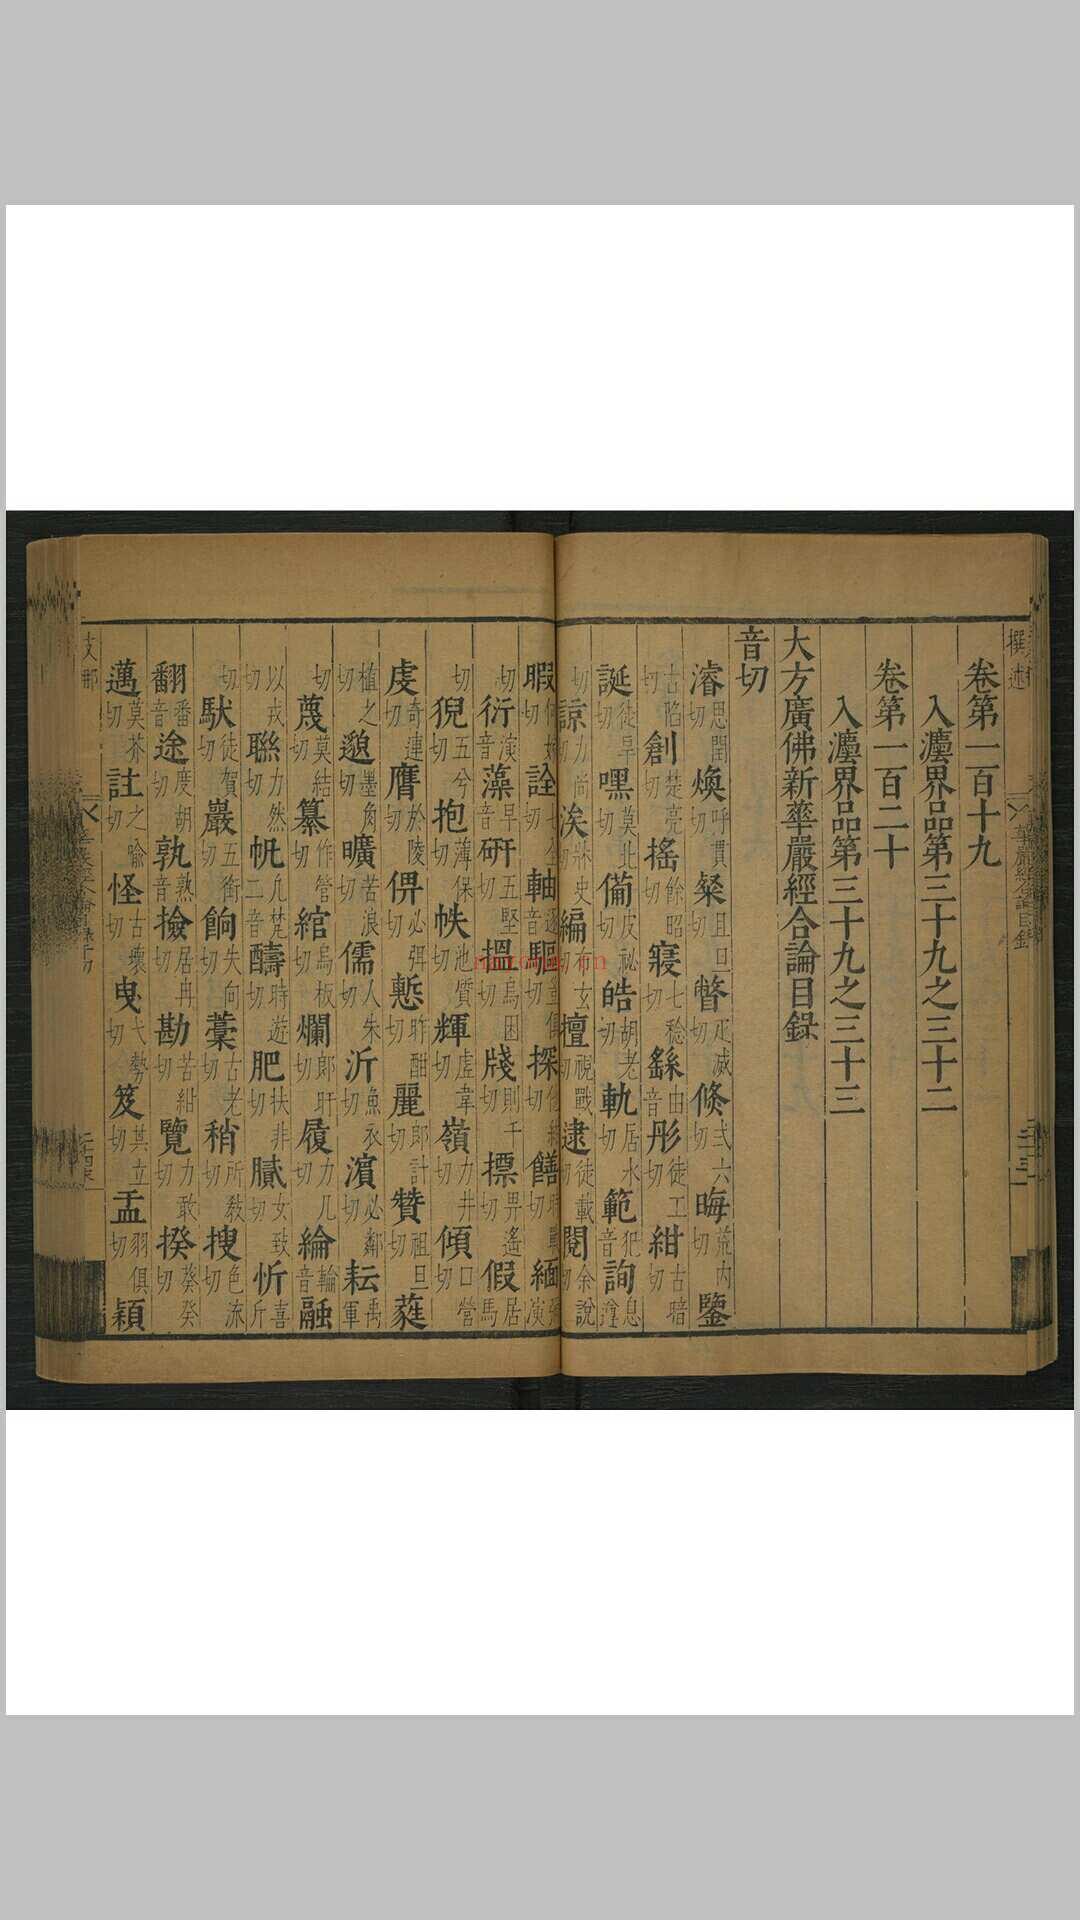 撰述
華嚴經合論目錄
卷第一百十九
入灋界品第三十九之三十二
卷第一百二十
入灋界品第三十九之三十三
大方廣佛新華嚴經合論目錄
音切
濬思閏切 煥呼貫切 粲且旦切 瞥疋滅切 倏式六切 晦荒內切 鑒
古陷切 創楚亮切 搖餘昭切 寢七稔切 繇音由 彤徒工切 紺古暗切
誕徒旱切 嘿莫北切 備皮祕切 皓胡老切 軌居水切 範音犯 詢息遵
切 諒力尚切 涘牀史切 編布玄切 擅視戰切 逮徒載切 閱余說切
暇 詮切 軸音逐 驅切 探切 饍時戰切 緬演
切 衍音演 藻音早 研五堅切 搵烏困切 牋則千切 摽畀遙切 假居馬
切 猊五兮切 抱薄保切 帙池質切 輝虛韋切 嶺力井切 傾口營切
虔奇連切 膺於陵切 俾必弭切 慙昨酣切 麗郎計切 贊祖旦切 蕤
植之切 邈墨角切 曠苦浪切 儒人朱切 沂魚衣切 濱必鄰切 耘禹軍
切 蔑莫結切 纂作管切 綰烏板切 爛郎旰切 履力几切 綸音輪 融
以戎切 聯力然切 帆凡梵二音 醻時遊切 肥扶非切 膩女致切 忻喜斤
切 馱徒賀切 巖五銜切 餉失向切 藁古老切 稍所敎切 搜色流切
翻音番 途度胡切 孰音熟 撿居冉切 勘苦紺切 覽力敢切 揆葵癸切
邁莫芥切 註之喻切 怪古壞切 曳弋勢切 笈其立切 盂羽俱切 穎
支那